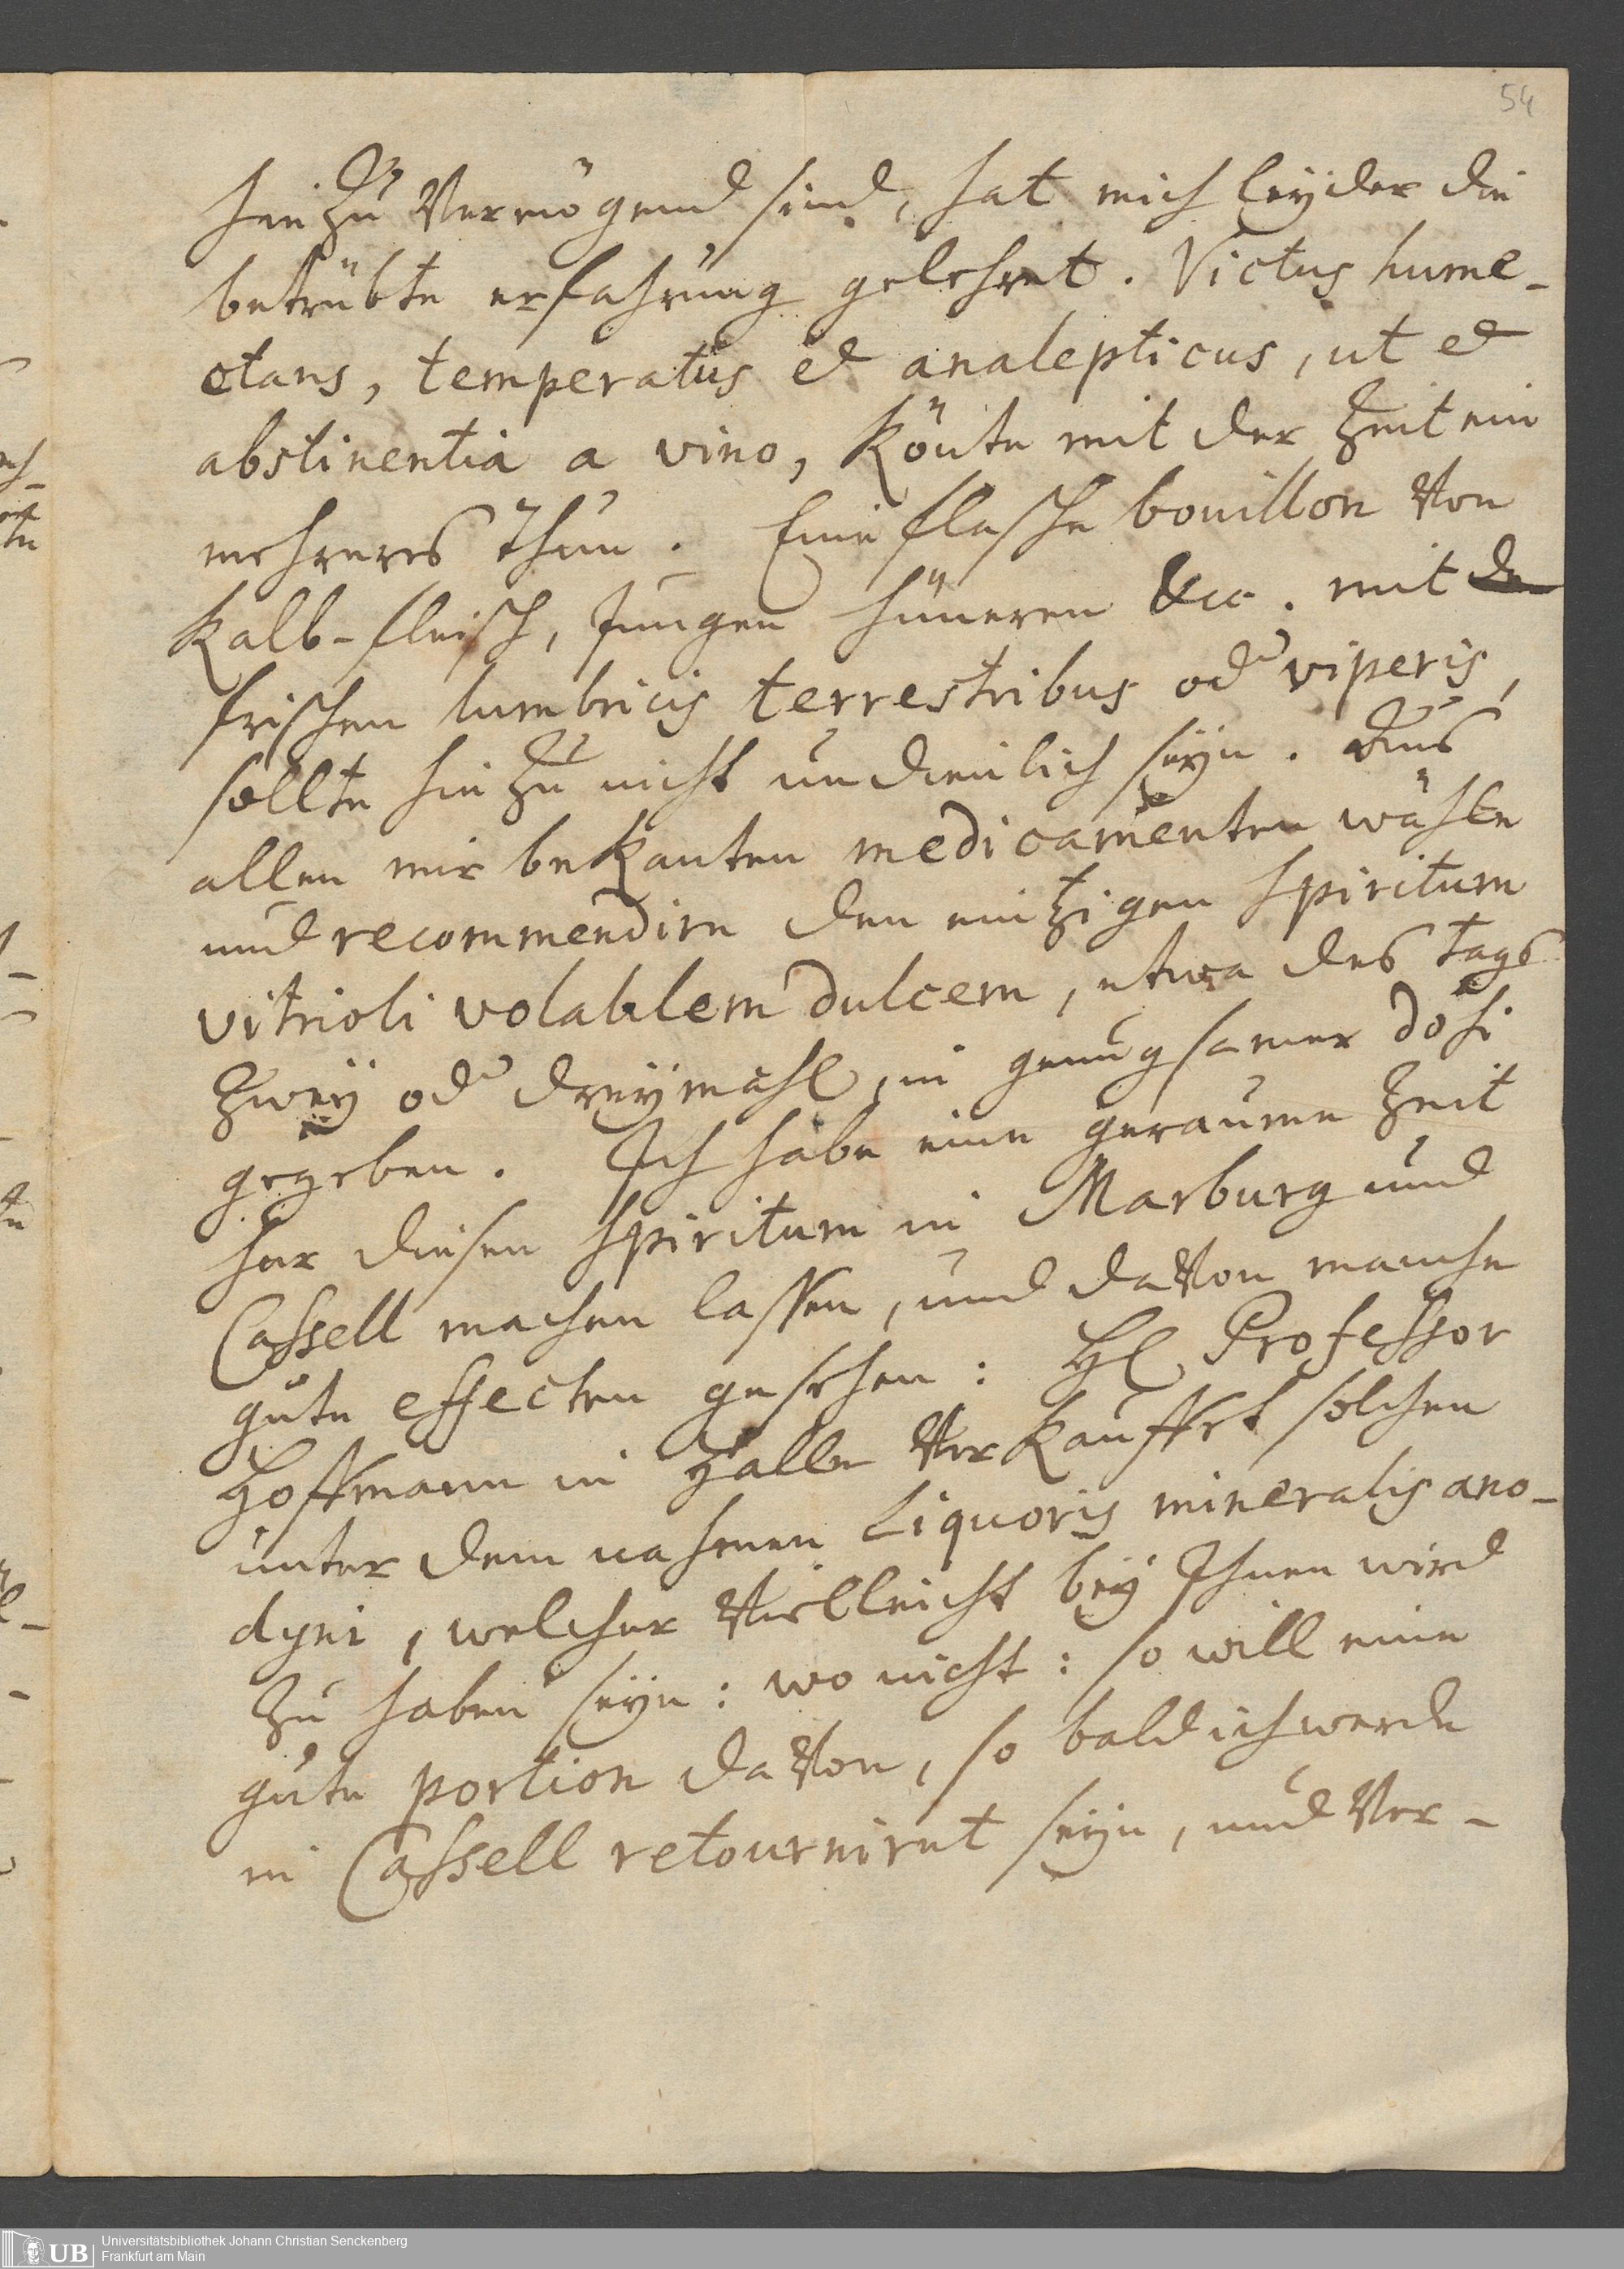 54
hie zu Vermögend sind, hat mich leyder die
betrübte erfahrung gelehret. Victus hume-
ctans, temperatus et analepticus, ut et
abstinentia a vino, Könte mit der Zeit ein
mehreres thun. Eine flasche bouillon Von
Kalb-fleisch, Jungen hüneren &cc. mit de
frischen lumbricis terrestribus od viperis,
sollte hie zu nicht undienlich seyn. Aus
allen mir bekanten medicamenten wähle
und recommendire den eintzigen spiritum
vitrioli volatilem dulcem, etwa des tags
Zwey od dreymahl, in genugsamer dosi
gegeben. Ich habe eine geraume Zeit
her diesen spiritum in Marburg und
Cassell machen lassen, und davon manche
gute effecten gesehen: Hl Professor
Hoffmann in Halle Verkauffet solchen
unter dem nahmen Liquoris mineralis ano-
dyni, welcher Vielleicht bey Ihnen wird
Zu haben seyn: wo nicht: so will eine
gute portion davon, so bald ich werde
in Cassell retourniret seyn, und Ver-
UB
Universitätsbibliothek Johann Christian Senckenberg
Frankfurt am Main